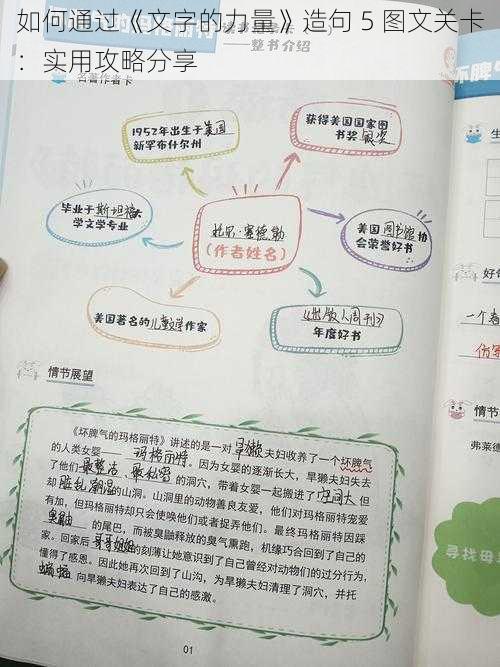 如何通过《文字的力量》造句 5 图文关卡
：实用攻略分享
——整书介绍
名著作者卡
1952年出生于美国
新罕布什尔州
获得美国国家图
书奖银奖
毕业于斯坦福大
学文学专业
杜尔·塞德勒
(作者姓名)
美国图书馆协
会荣誉好书
美国著名的儿童文学作家
《出版人周刊》
年度好书
情节展望
《坏脾气的玛格丽特》讲述的是一对旱獭夫妇收养了一个坏脾气
的人类女婴——玛格丽特。因为女婴的逐渐长大，旱獭夫妇失去
了他们最整洁、最私密的洞穴，带着女婴一起搬进了空间大但
却脏乱潮湿的山洞。山洞里的动物善良友爱，他们对玛格丽特宠爱
有加，但玛格丽特却只会使唤他们或者捉弄他们。最终玛格丽特因踩
臭鼬的尾巴，而被臭鼬释放的臭气熏跑，机缘巧合回到了自己的
家。回家后哥哥姐姐的刻薄让她意识到了自己曾经对动物们的过分行为，
懂得了感恩。因此她再次回到了山沟，为旱獭夫妇清理了洞穴，并托
蝙蝠向旱獭夫妇表达了自己的感激。
01
坏脾
生
好句
一个春
仿写
情节
弗莱德
寻找母